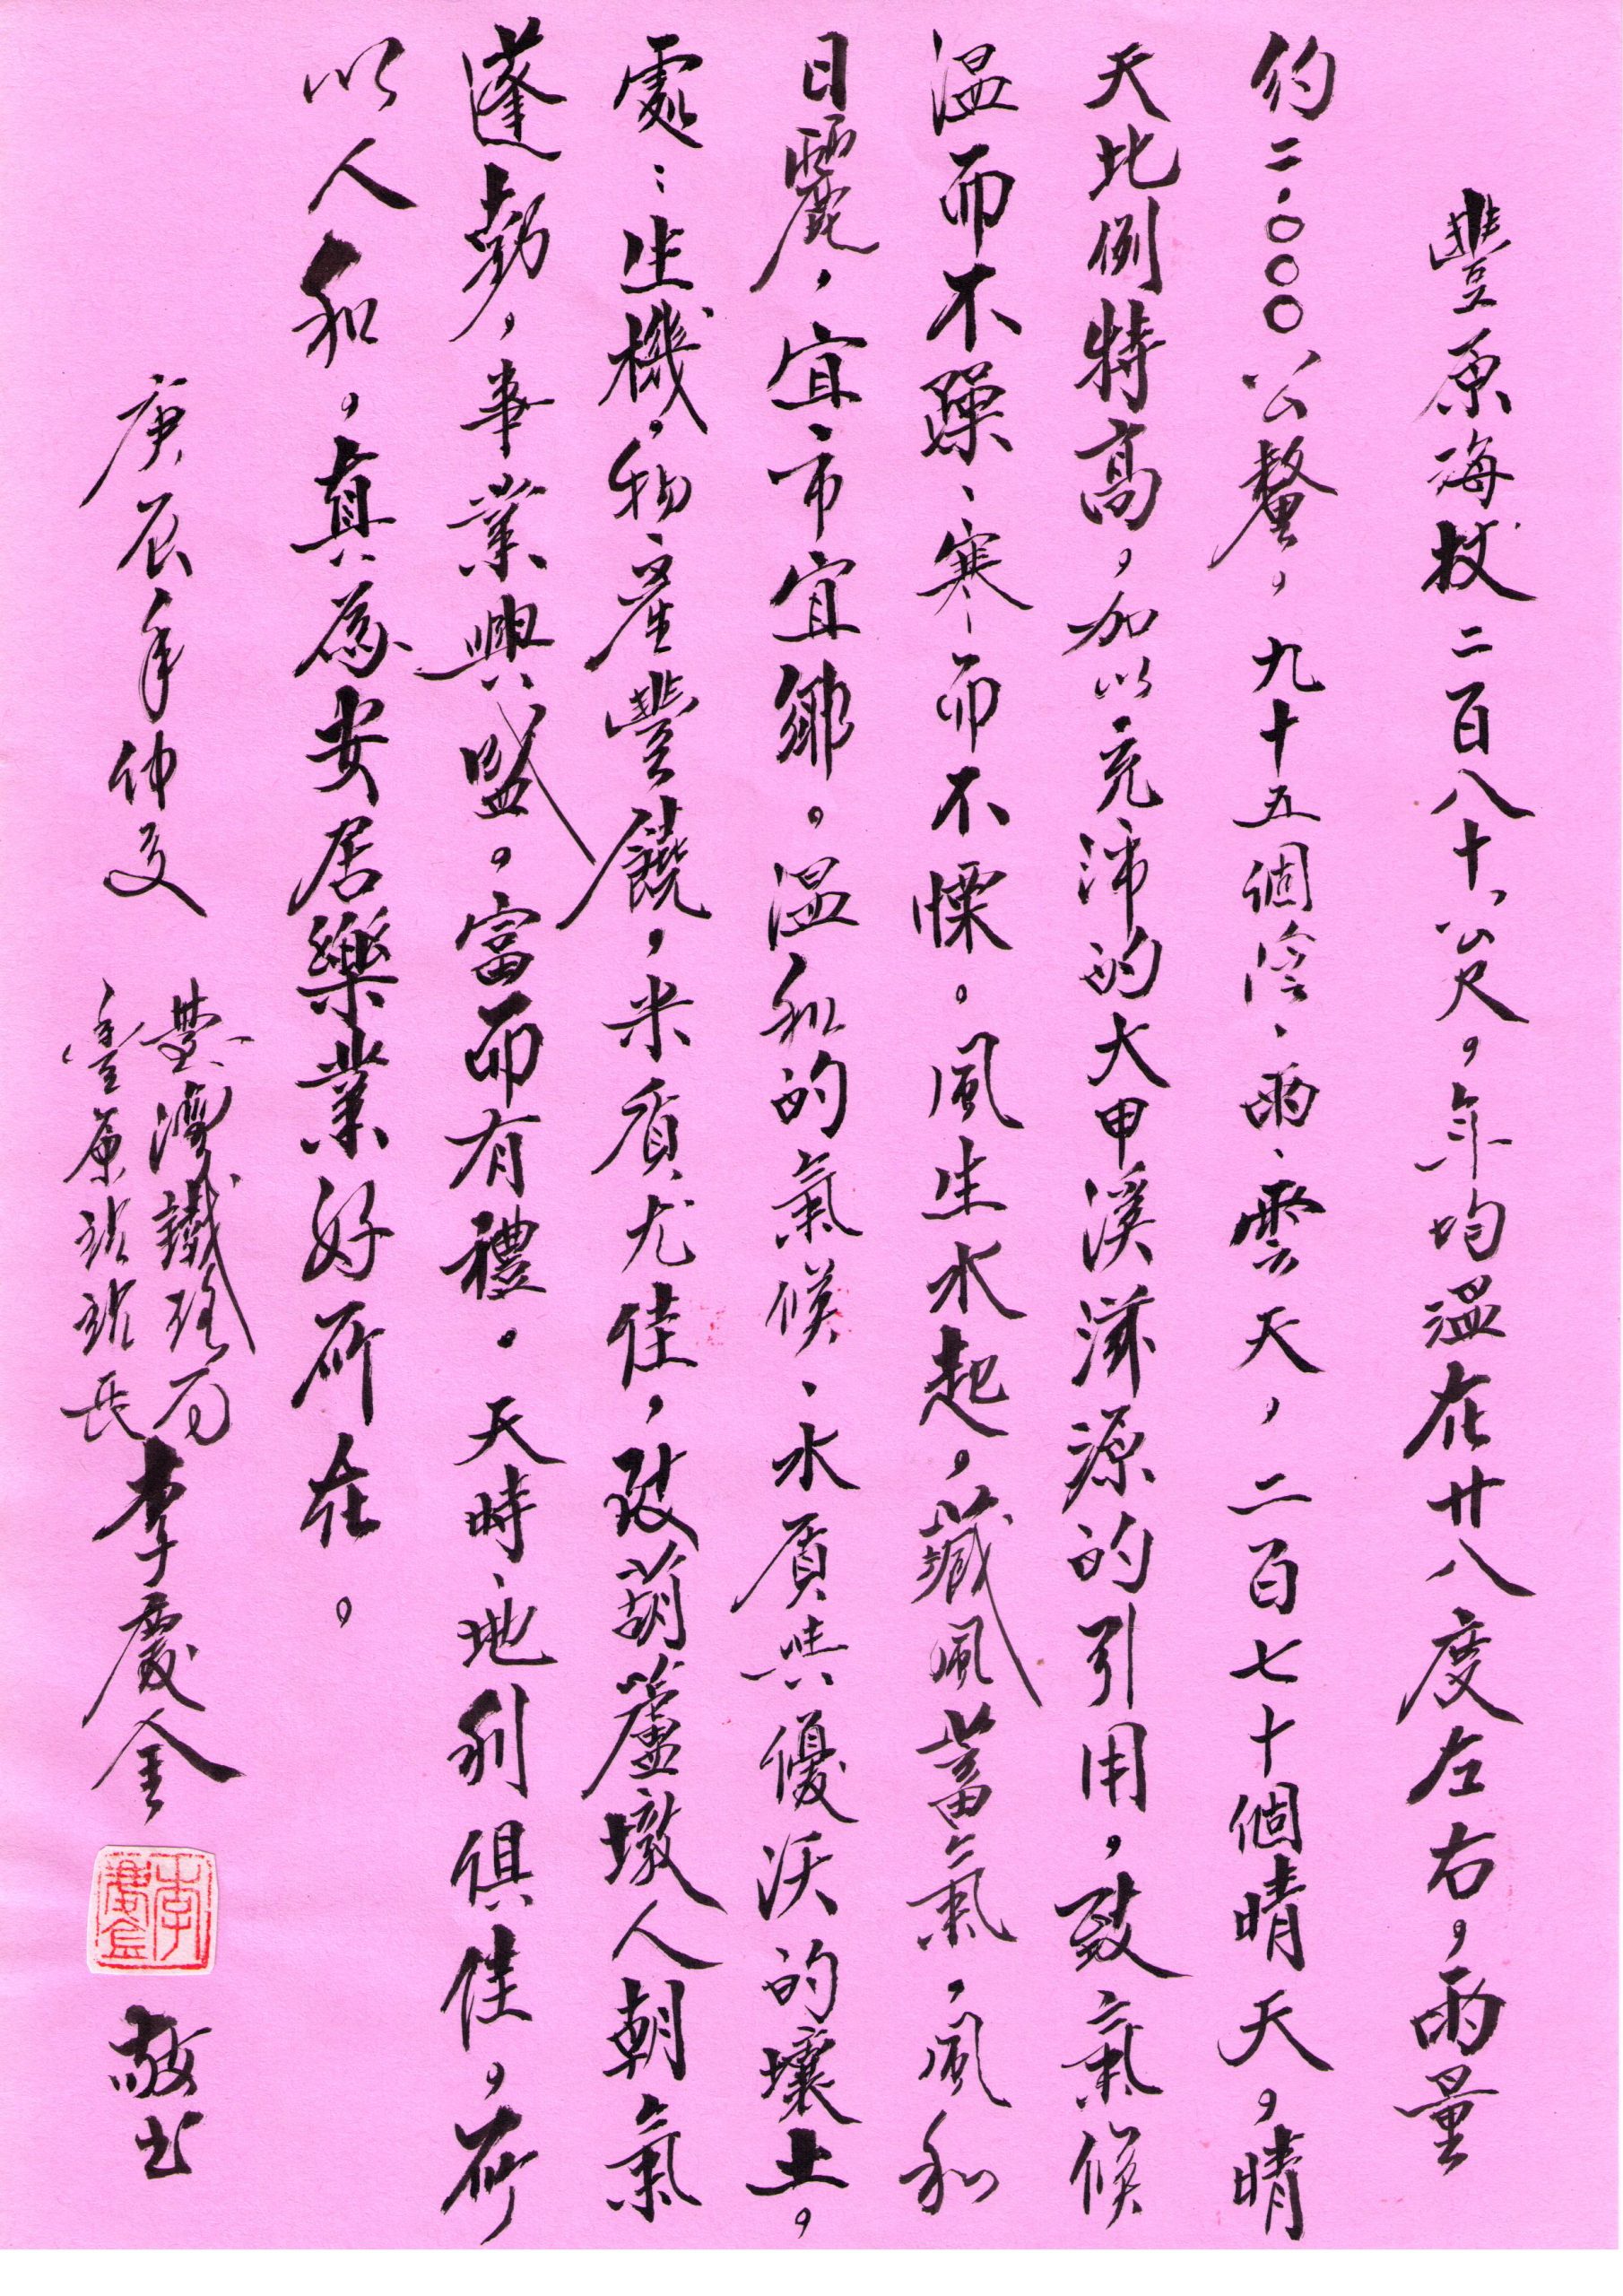 豐原海拔二百八十公尺。年均溫在廿八度左右，雨量
約二.〇〇〇公釐，九十五個陰、雨、雲天，二百七十個晴天。晴
天比例特高，加以充沛的大甲溪滋源的引用，致氣候
溫而不躁、寒而不慄。風生水起，藏風蓄氣，風和
日麗，宜市宜鄉。溫和的氣候、水質與優沃的壤土。
處：生機，物產豐饒，米質尤佳，致葫蘆墩人朝氣
蓬勃，事業興盛。富而有禮。天時、地利俱佳，所
以人和，真為安居樂業好所在。
庚辰年仲夏
臺灣鐵路局
豐原站站長
李慶金
李慶金
敬书